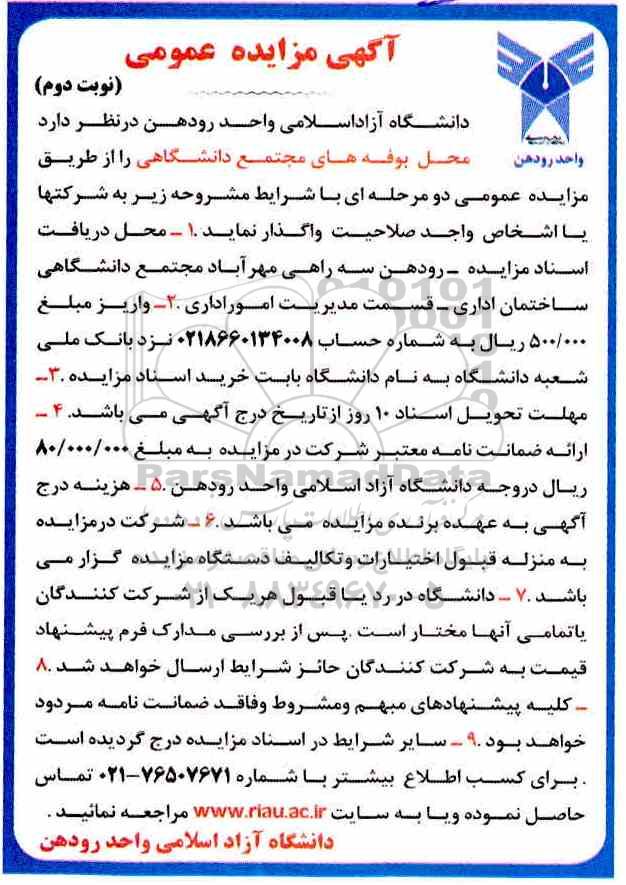 آگهی مزایده عمومی
(نوبت دوم)
واحد رودهن
دانشگاه آزاداسلامی واحد رودهن درنظر دارد
محل بوفه های مجتمع دانشگاهی را از طریق
مزایده عمومی دو مرحله ای با شرایط مشروحه زیر به شرکتها
یا اشخاص واجد صلاحیت واگذار نماید .۱ – محل دریافت
اسناد مزایده – رودهن سه راهی مهرآباد مجتمع دانشگاهی
ساختمان اداری – قسمت مدیریت اموراداری .۲– واریز مبلغ
۵۰۰/۰۰۰ ریال به شماره حساب ۰۲۱۸۶۶۰۱۳۴۰۰۸ نزد بانک ملی
شعبه دانشگاه به نام دانشگاه بابت خرید اسناد مزایده .۳–
مهلت تحویل اسناد ۱۰ روز ازتاریخ درج آگهی می باشد. ۴ –
ارائه ضمانت نامه معتبر شرکت در مزایده به مبلغ ۸۰/۰۰۰/۰۰۰
ریال دروجه دانشگاه آزاد اسلامی واحد رودهن .۵ – هزینه درج
آگهی به عهده برنده مزایده می باشد .۶ – شرکت درمزایده
به منزله قبول اختیارات وتکالیف دستگاه مزایده گزار می
باشد .۷ – دانشگاه در رد یا قبول هریک از شرکت کنندگان
یاتمامی آنها مختار است .پس از بررسی مدارک فرم پیشنهاد
قیمت به شرکت کنندگان حائز شرایط ارسال خواهد شد .۸
– کلیه پیشنهادهای مبهم ومشروط وفاقد ضمانت نامه مردود
خواهد بود .۹ – سایر شرایط در اسناد مزایده درج گردیده است
. برای کسب اطلاع بیشتر با شماره ۷۶۵۰۷۶۷۱–۰۲۱ تماس
حاصل نموده ویا به سایت www.riau.ac.ir مراجعه نمائید .
دانشگاه آزاد اسلامی واحد رودهن
ParsNamadData
۰۲۱-۸۸۳۴۹۶۷۰-۵